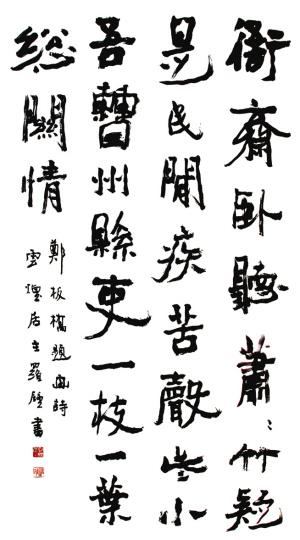 衙齋卧聽蕭〻竹疑
是民間疾苦聲些小
吾曹州縣吏一枝一葉
総關情
鄭板橋題画詩
雲煙居主羅書